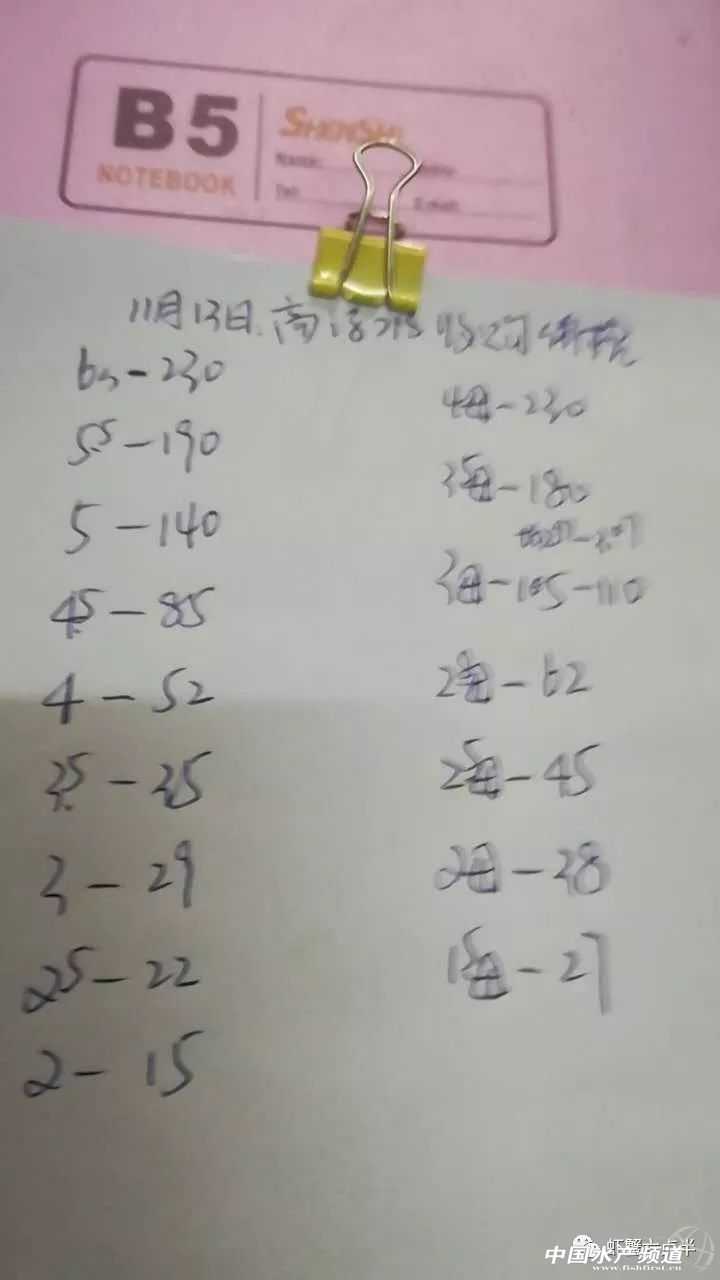 B5
NOTEBOOK
SHENSHI
Name:
Tel:
E-mail:
11月13日.高淳
60-230
55-190
5-140
45-85
4-52
35-35
3-29
25-22
2-15
4母-230
35母-180
3母-105-110
28母-62
25母-45
2母-38
15母-27
虾蟹六点半
中国水产频道
www.fishfirst.cn